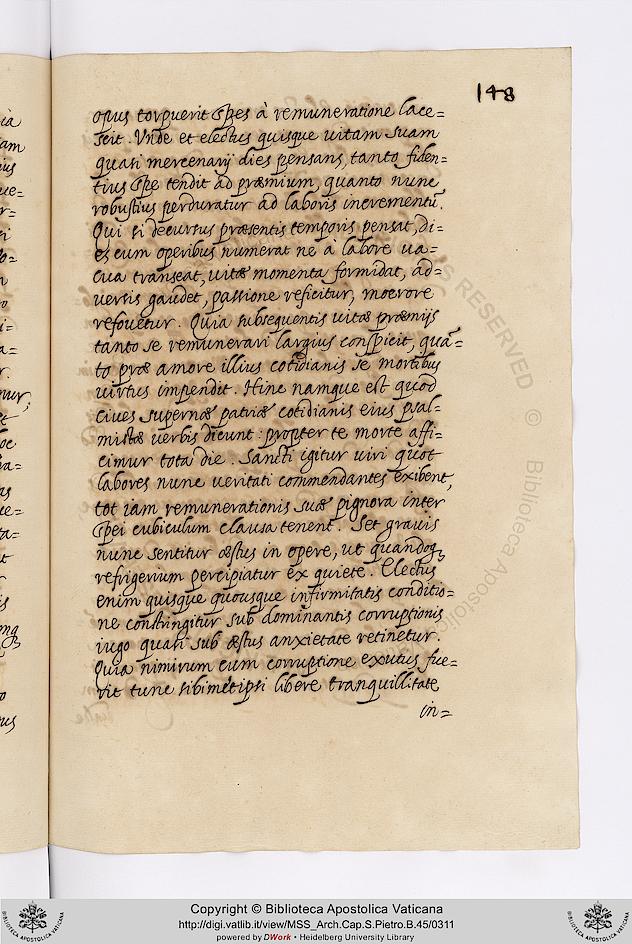 148
opus torpuerit spes à remuneratione lace=
scit. Unde et electus quisque uitam suam
quasi mercenarij dies pensans, tanto fiden=
tius spe tendit ad præmium, quanto nunc
robustius perduratur ad laboris incrementū.
Qui si decursus præsentis temporis pensat, di=
es cum operibus numerat ne à labore ua=
cua transeat, uitæ momenta formidat, ad=
uersis gaudet, passione reficitur, moerore
refouetur. Quia subsequentis uitæ præmijs
tanto se remunerari largius conspicit, quā=
to præ amore illius cotidianis se mortibus
uirtus impendit. Hinc namque est quod
ciues supernæ patriæ cotidianis eius psal=
mistæ uerbis dicunt: propter te morte affi=
cimur tota die. Sancti igitur uiri quot
labores nunc ueritati commendantes exibent,
tot iam remunerationis suæ pignora inter
spei cubiculum clausa tenent. Set grauis
nunc sentitur æstus in opere, ut quandoq;
refrigerium percipiatur ex quiete. Electus
enim quisque quousque infirmitatis conditio=
ne constringitur sub dominantis corruptionis
iugo quasi sub æstus anxietate retinetur.
Quia nimirum cum corruptione exutus fue=
rit tunc sibimetipsi libere tranquillitate
in=
RESERVED © Biblioteca Aposto
Copyright © Biblioteca Apostolica Vaticana
http://digi.vatlib.it/view/MSS_Arch.Cap.S.Pietro.B.45/0311
powered by DWork • Heidelberg University Library